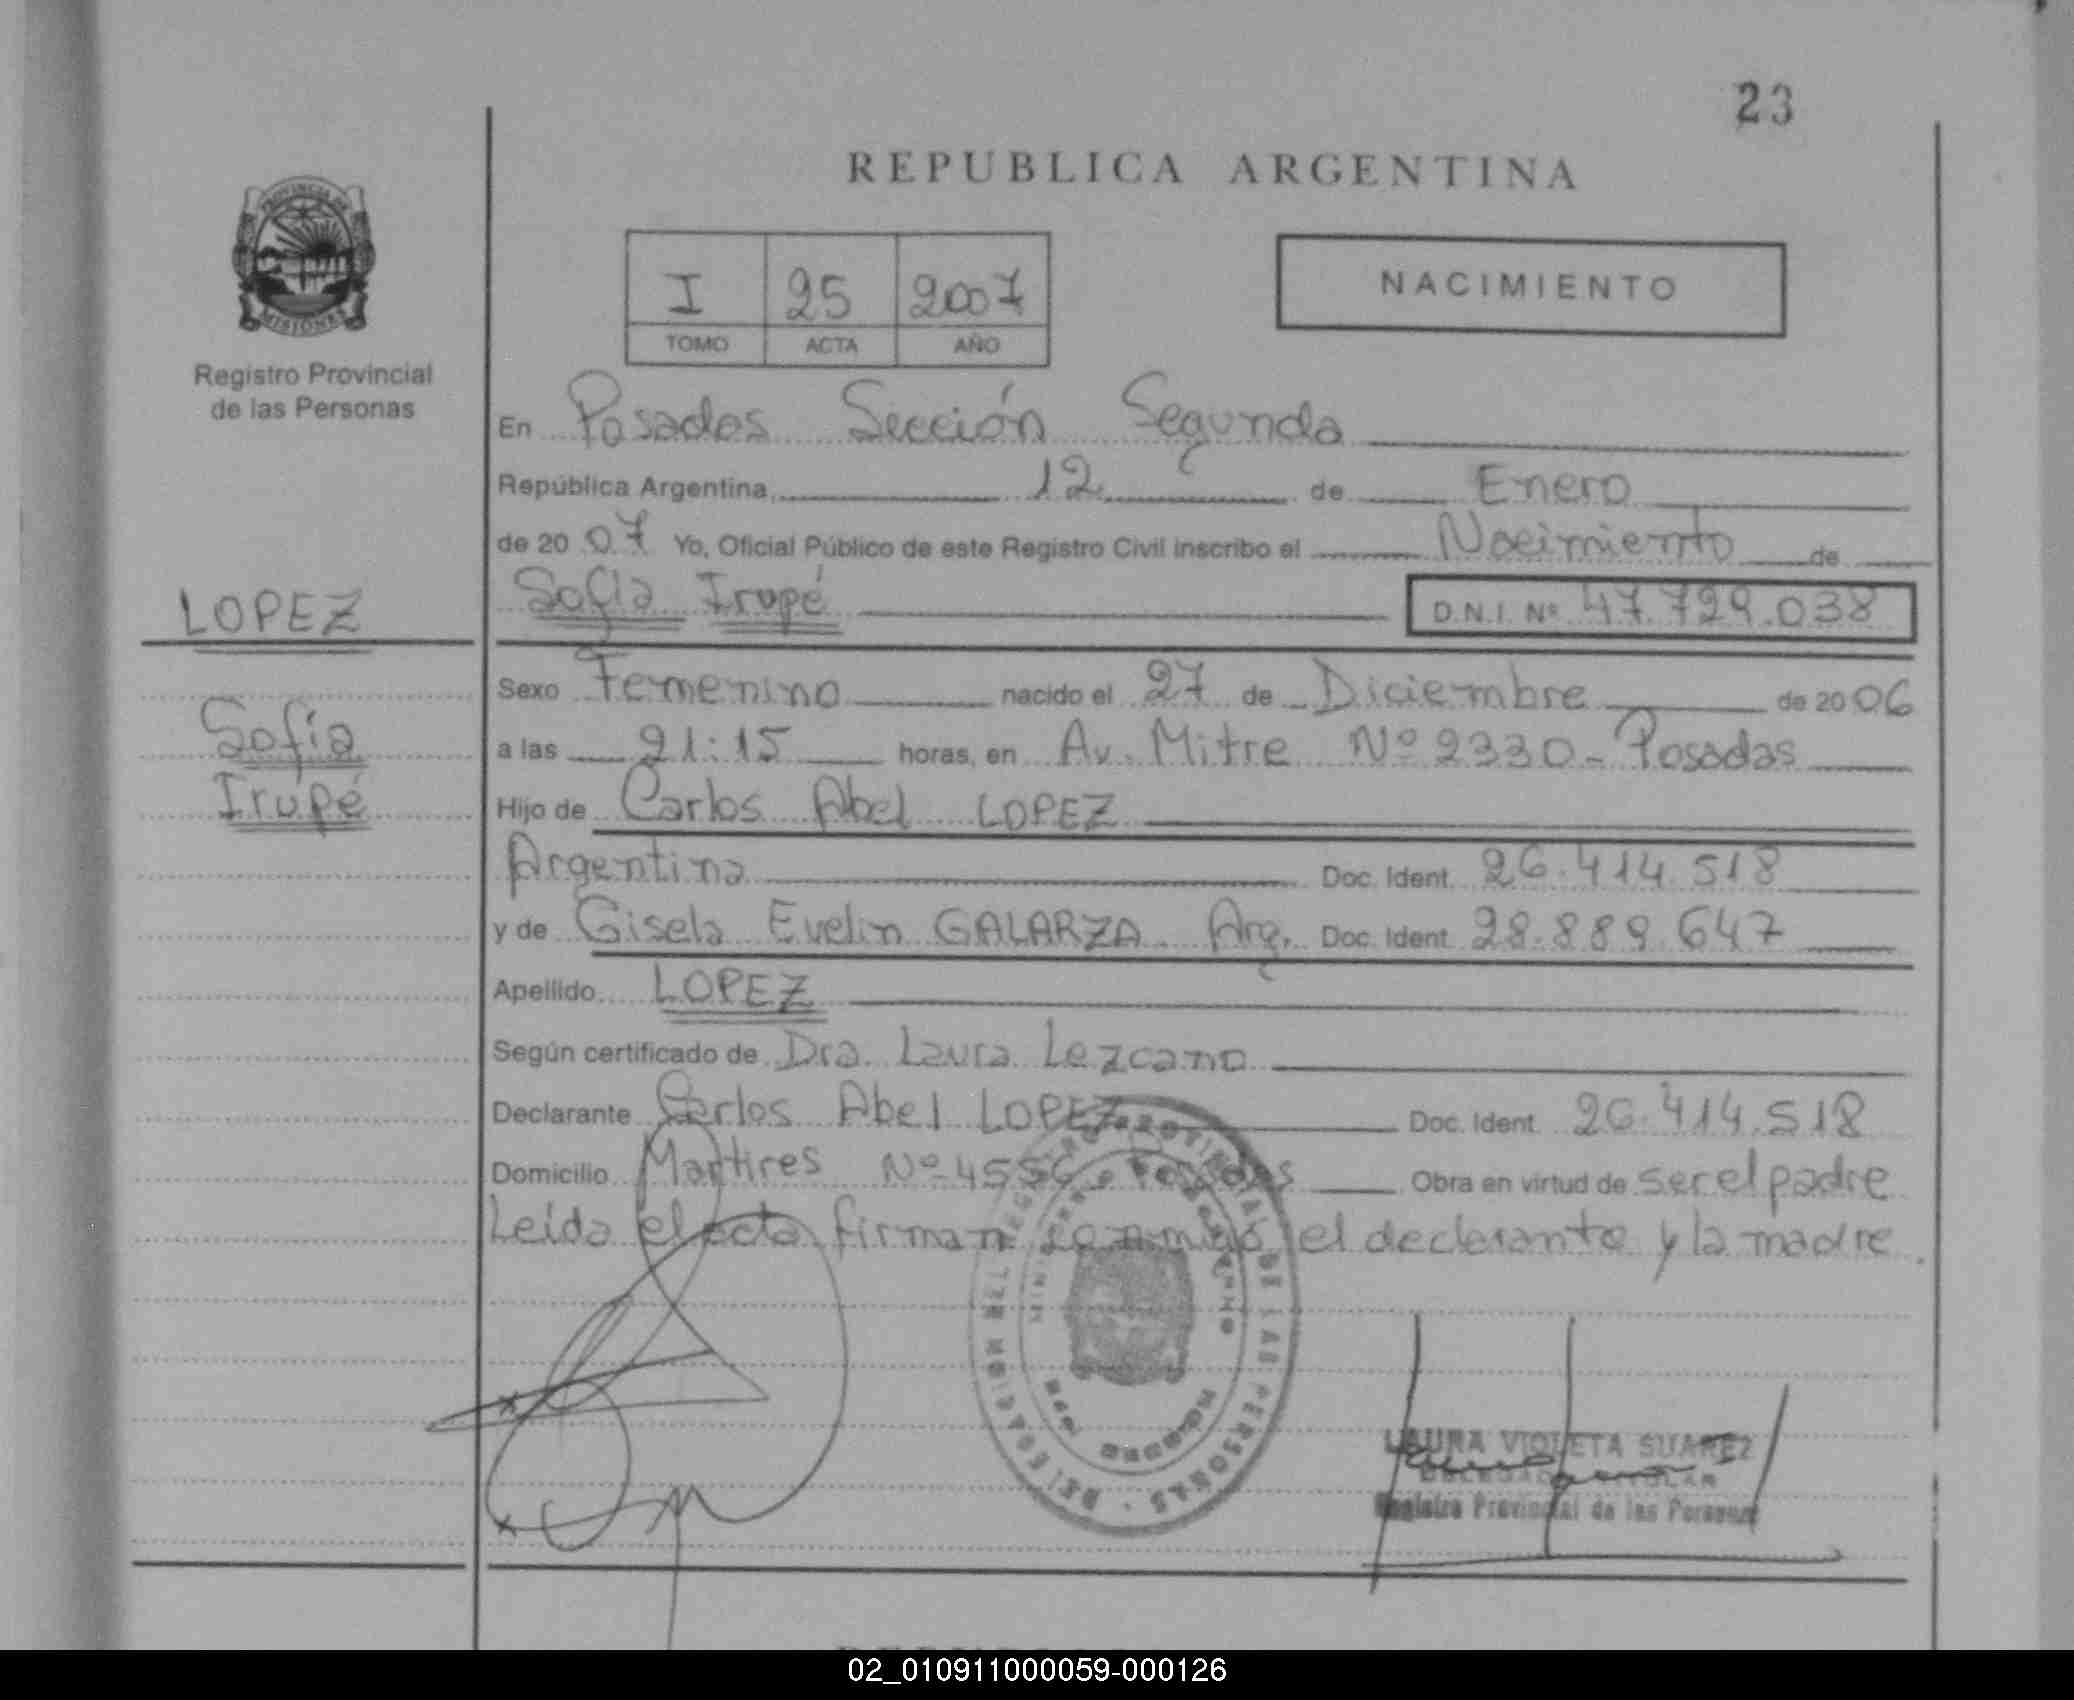 23
REPUBLICA ARGENTINA
PROVINCIA DE
MISIONES
Registro Provincial
de las Personas
I 25 2007
TOMO ACTA AÑO
NACIMIENTO
En Posadas Sección Segunda
República Argentina, 12 de Enero
de 2007 Yo, Oficial Público de este Registro Civil inscribo el Nacimiento de
LOPEZ
Sofía Irupé D.N.I. Nº 47.729.038
Sexo Femenino nacido el 27 de Diciembre de 2006
Sofía
a las 21:15 horas, en Av. Mitre Nº 2330 - Posadas
Irupé
Hijo de Carlos Abel LOPEZ
Argentina Doc. Ident. 26.414.518
y de Gisela Evelin GALARZA Arg. Doc. Ident. 28.889.647
Apellido LOPEZ
Según certificado de Dra. Laura Lezcano
Declarante Carlos Abel LOPEZ Doc. Ident. 26.414.518
Domicilio Martires Nº 4556 - Posadas Obra en virtud de ser el padre
Leída el acta firman conmigo el declarante y la madre.
DELEGACION DEL REGISTRO PROVINCIAL DE LAS PERSONAS
LAURA VIOLETA SUAREZ
Registro Provincial de las Personas
02_010911000059-000126